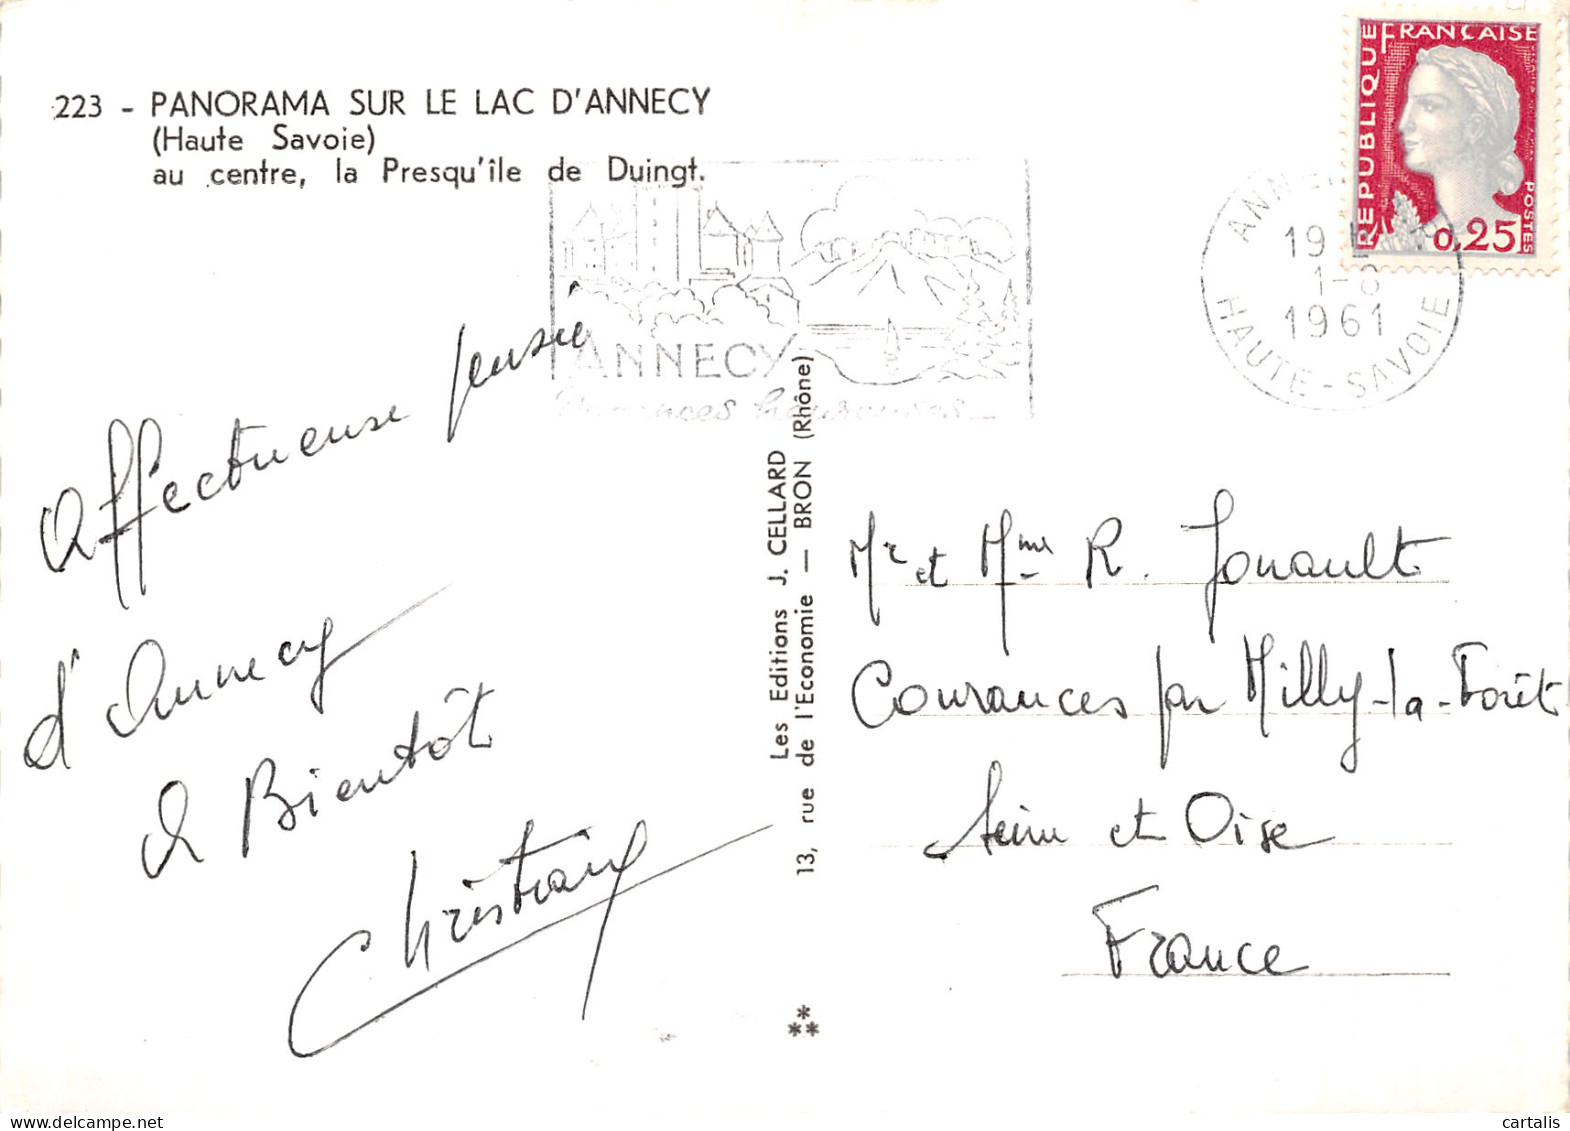 223 - PANORAMA SUR LE LAC D'ANNECY
(Haute Savoie)
au centre, la Presqu'île de Duingt.
REPUBLIQUE FRANÇAISE
POSTES
0,25
ANNECY
1961
HAUTE-SAVOIE
Affectueuse pensée
d'Annecy
A Bientôt
Christiane
Les Editions J. CELLARD
13, rue de l'Economie — BRON (Rhône)
Mr et Mme R. Jouault
Courances par Milly-la-Forêt
Seine et Oise
France
cartalis
cartalis.com